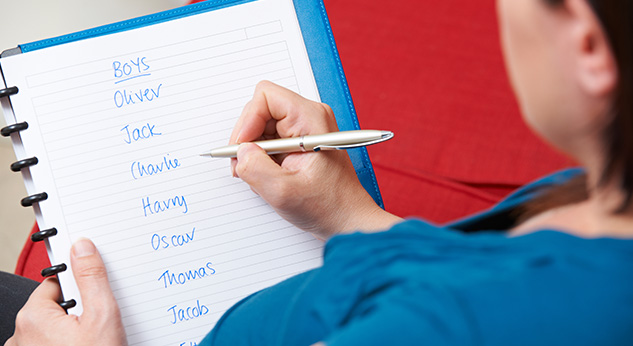 BOYS
Oliver
Jack
Charlie
Harry
Oscar
Thomas
Jacob